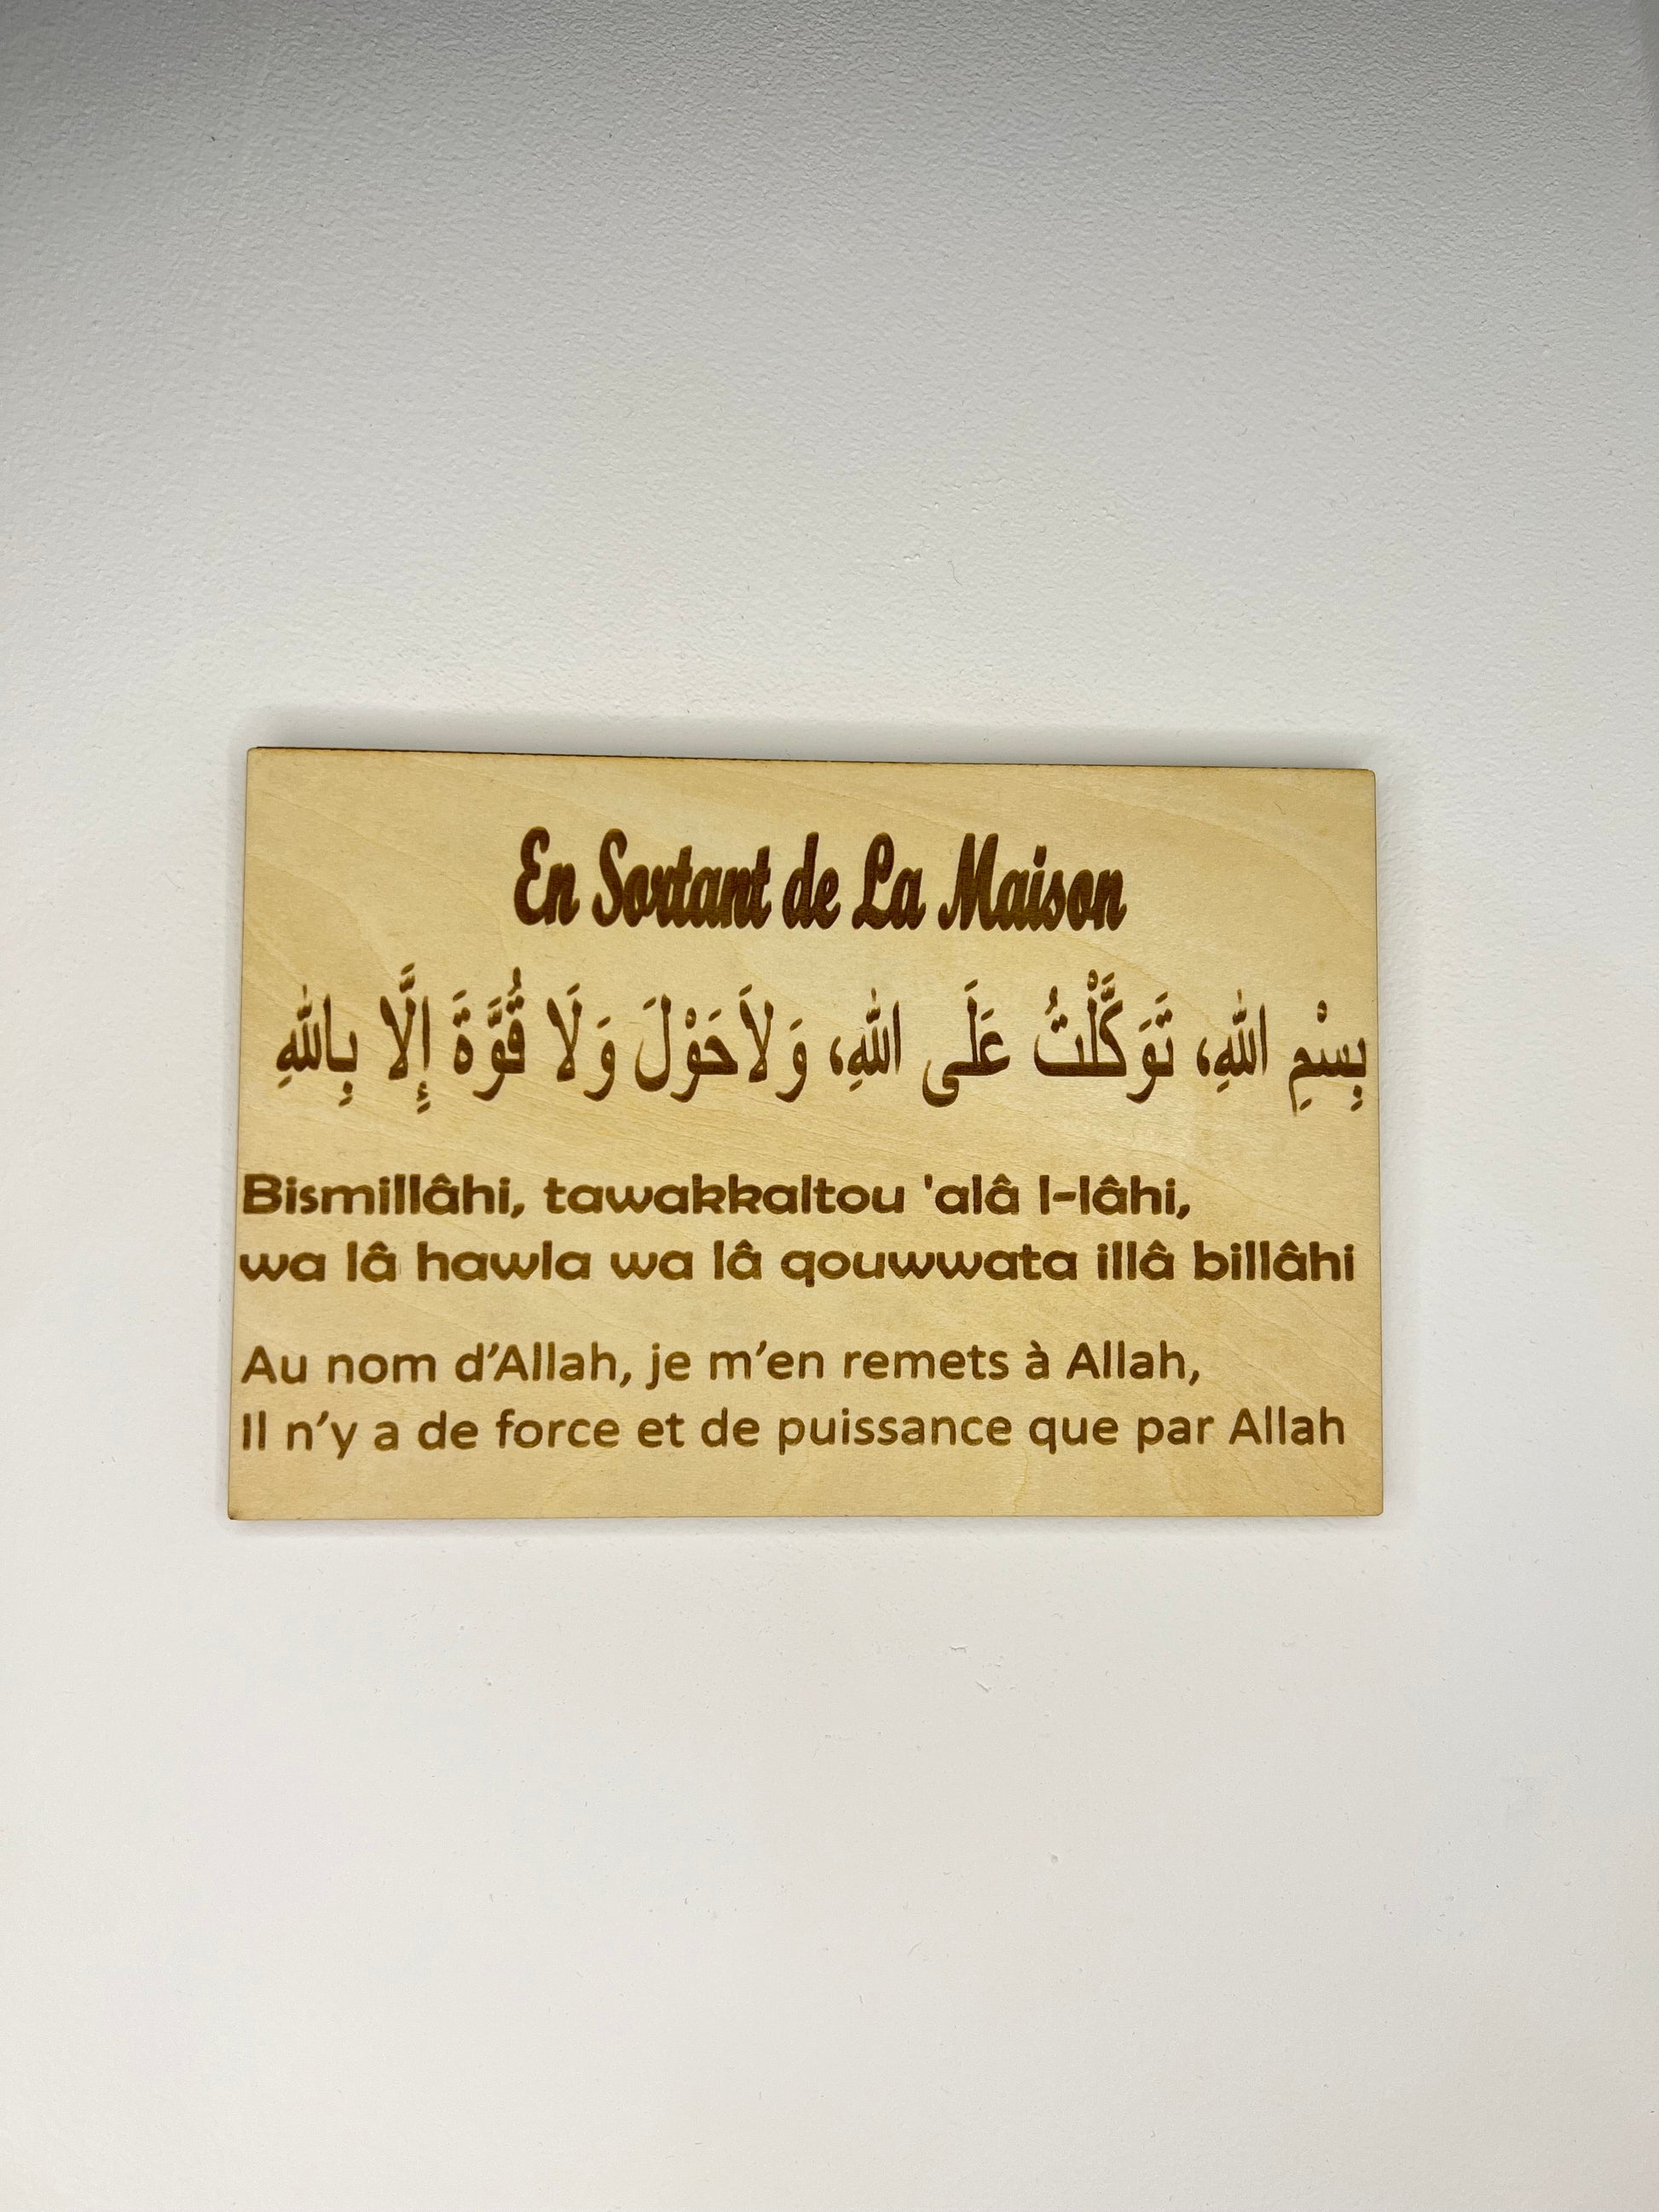 En Sortant de La Maison
بِسْمِ اللهِ، تَوَكَّلْتُ عَلَى اللهِ، وَلاَحَوْلَ وَلَا قُوَّةَ إِلَّا بِاللهِ
Bismillâhi, tawakkaltou 'alâ l-lâhi,
wa lâ hawla wa lâ qouwwata illâ billâhi
Au nom d’Allah, je m’en remets à Allah,
Il n’y a de force et de puissance que par Allah